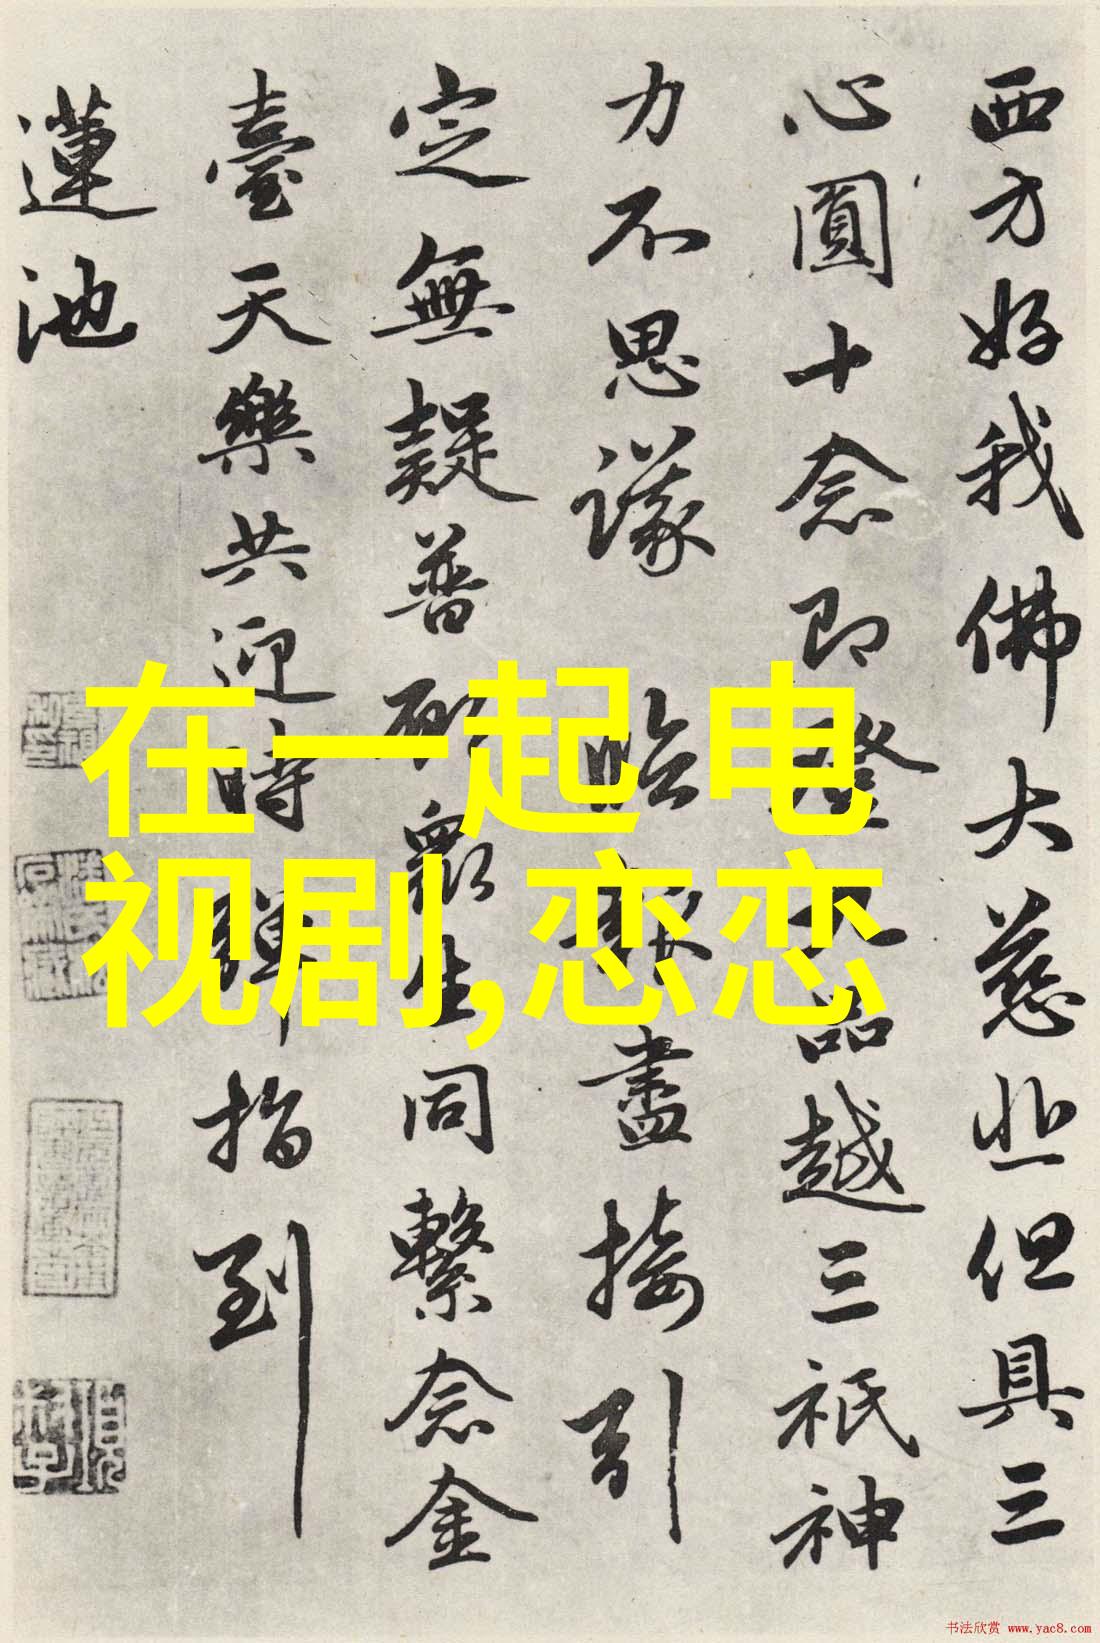 西方好我佛大慈悲但具三
心圓十念即證品越三祇神
力不思議 臨報盡接引
定無疑普願眾生同繫念金
臺天樂共迎時彈指到
蓮池
在一起 电
视剧,恋恋
书法欣赏 www.yac8.com